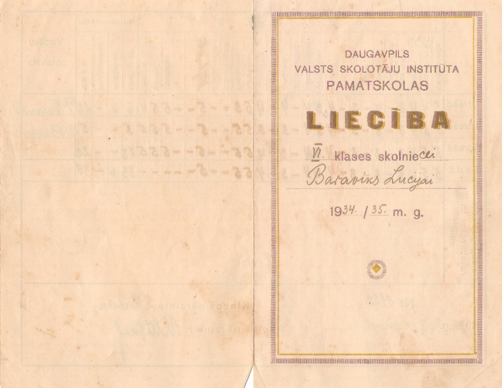 DAUGAVPILS
VALSTS SKOLOTĀJU INSTITŪTA
PAMATSKOLAS
LIECĪBA
VI. klases skolniecei
Baraviks Lucijai
1934./35. m. g.